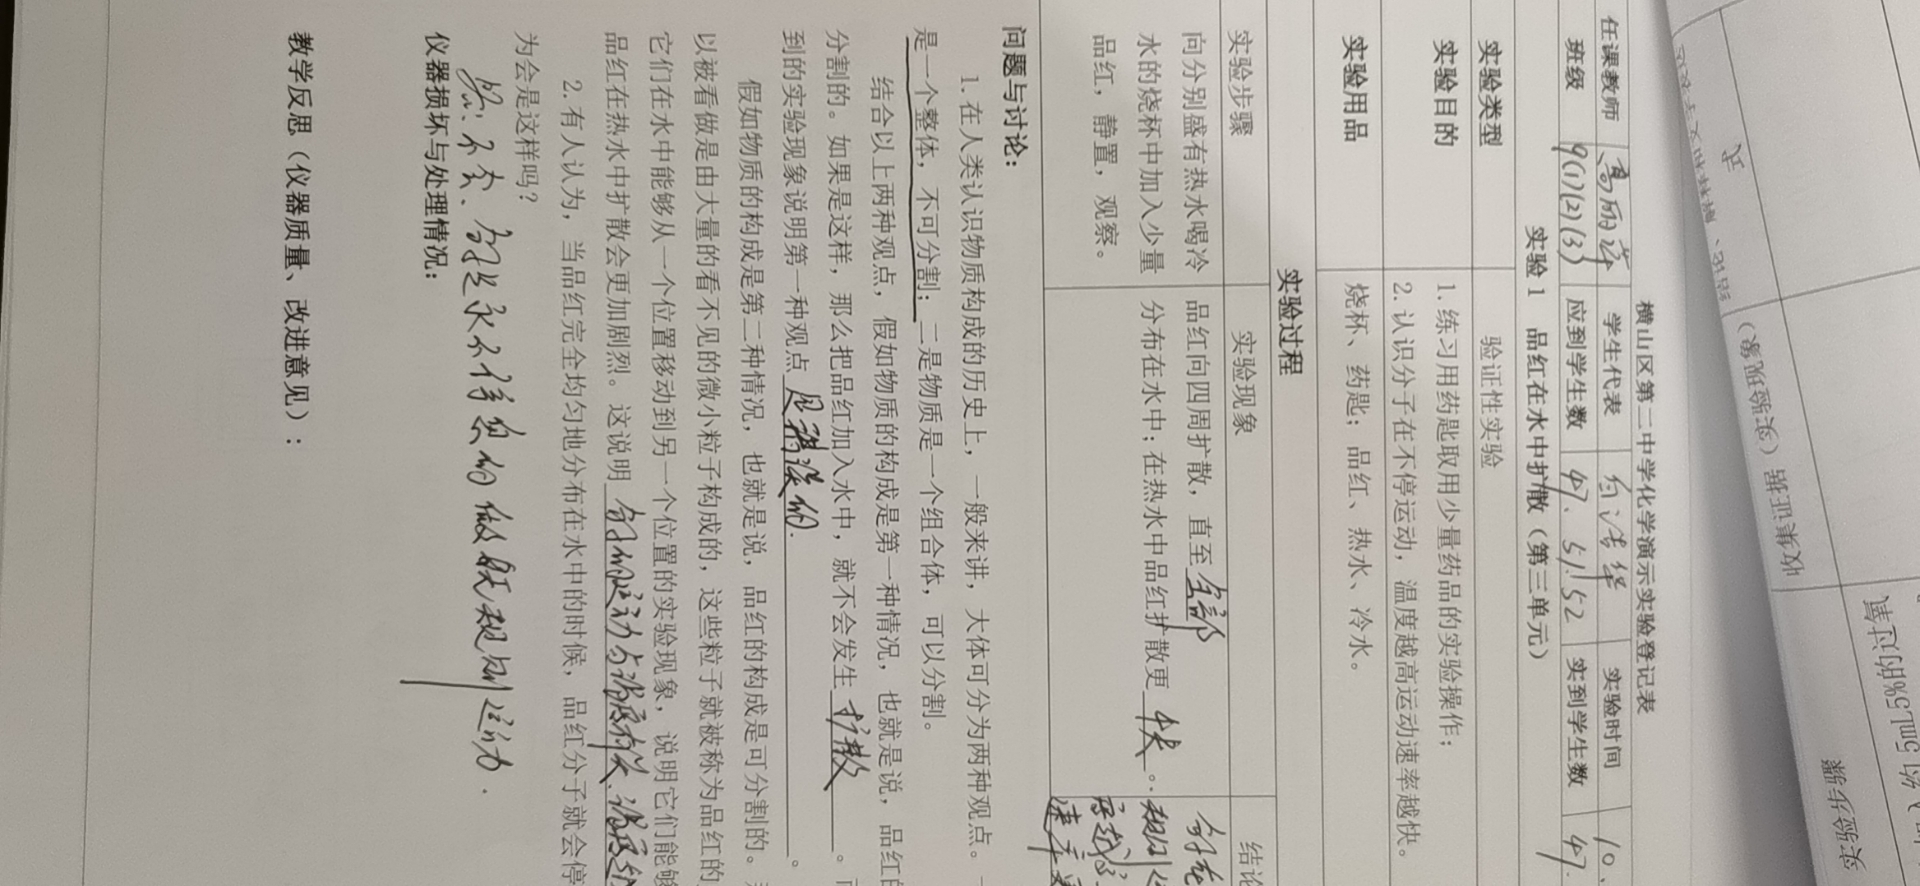 横山区第二中学化学演示实验登记表
任课教师 高丽萍 学生代表 实验时间 10.
班级 9(1)(2)(3) 应到学生数 47. 51. 52 实到学生数 47.
实验1 品红在水中扩散（第三单元）
实验类型 验证性实验
实验目的 1. 练习用药匙取用少量药品的实验操作；
2. 认识分子在不停运动，温度越高运动速率越快。
实验用品 烧杯、药匙；品红、热水、冷水。
实验过程
实验步骤 实验现象 结论
向分别盛有热水喝冷 品红向四周扩散，直至 全部
水的烧杯中加入少量 分布在水中；在热水中品红扩散更 快 。
品红，静置，观察。
问题与讨论：
1. 在人类认识物质构成的历史上，一般来讲，大体可分为两种观点。一
是一个整体，不可分割；二是物质是一个组合体，可以分割。
结合以上两种观点，假如物质的构成是第一种情况，也就是说，品红的
分割的。如果是这样，那么把品红加入水中，就不会发生 扩散 。而
到的实验现象说明第一种观点 是错误的. 。
假如物质的构成是第二种情况，也就是说，品红的构成是可分割的。
以被看做是由大量的看不见的微小粒子构成的，这些粒子就被称为品红的
它们在水中能够从一个位置移动到另一个位置的实验现象，说明它们能够
品红在热水中扩散会更加剧烈。这说明 分子的运动与温度有关.温度越
2. 有人认为，当品红完全均匀地分布在水中的时候，品红分子就会停
为会是这样吗？
答：不会、分子是永不停息的做无规则运动.
仪器损坏与处理情况：
教学反思（仪器质量、改进意见）：
式
收集证据（实验现象）
5%的过氧
实验步骤